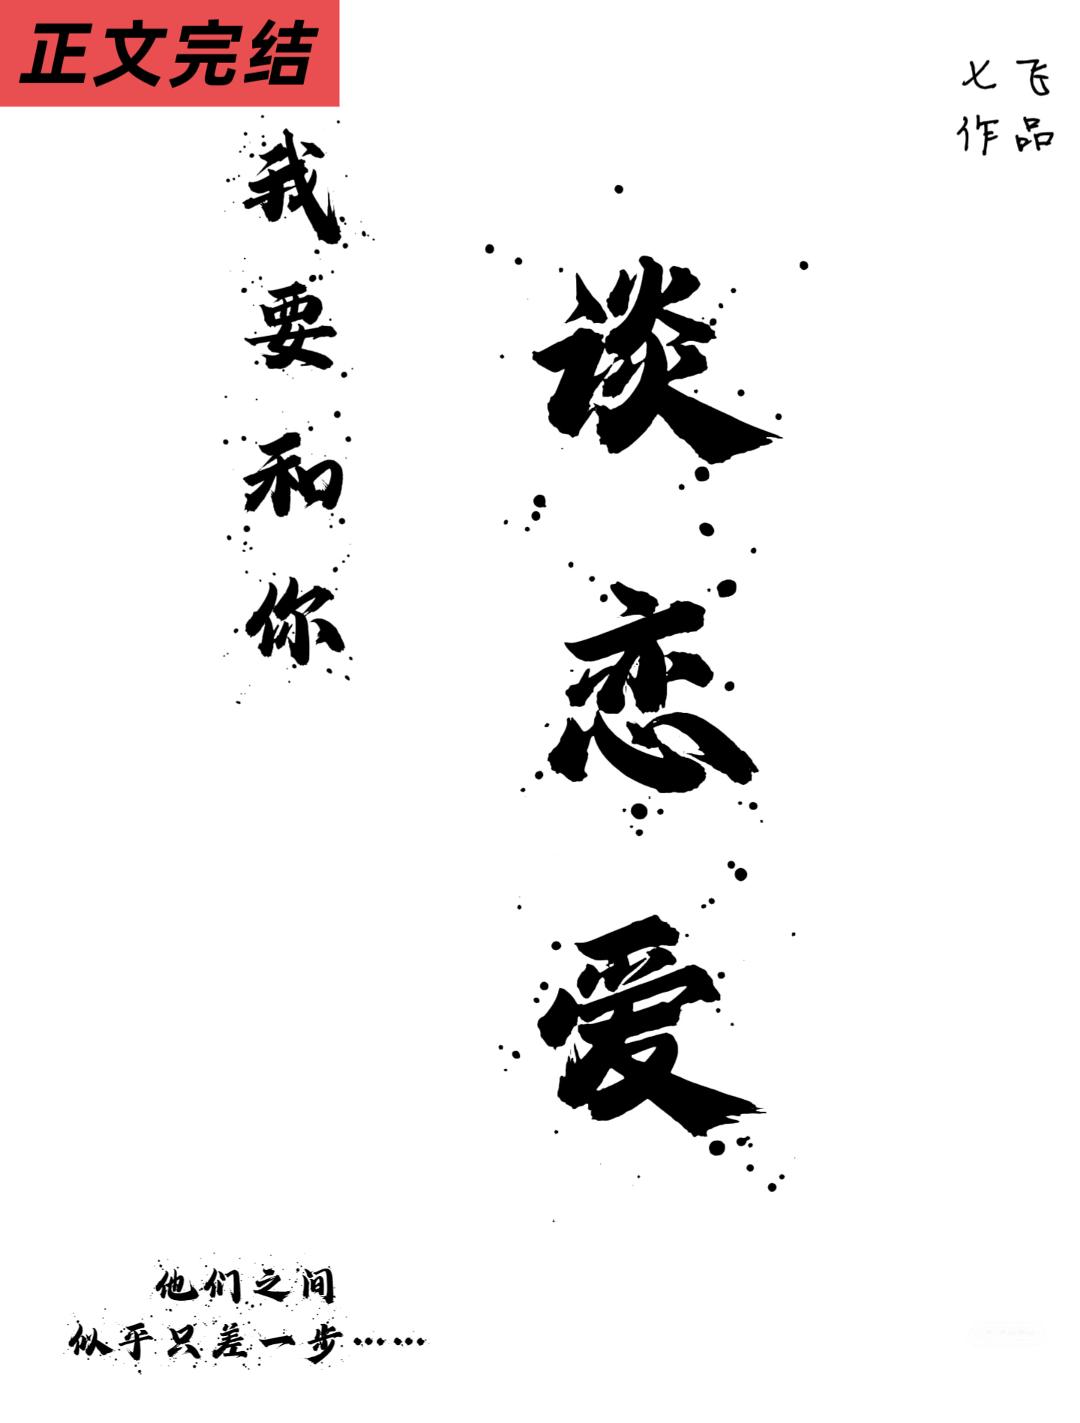 正文完结
七飞
作品
我要和你
谈恋爱
他们之间
似乎只差一步……